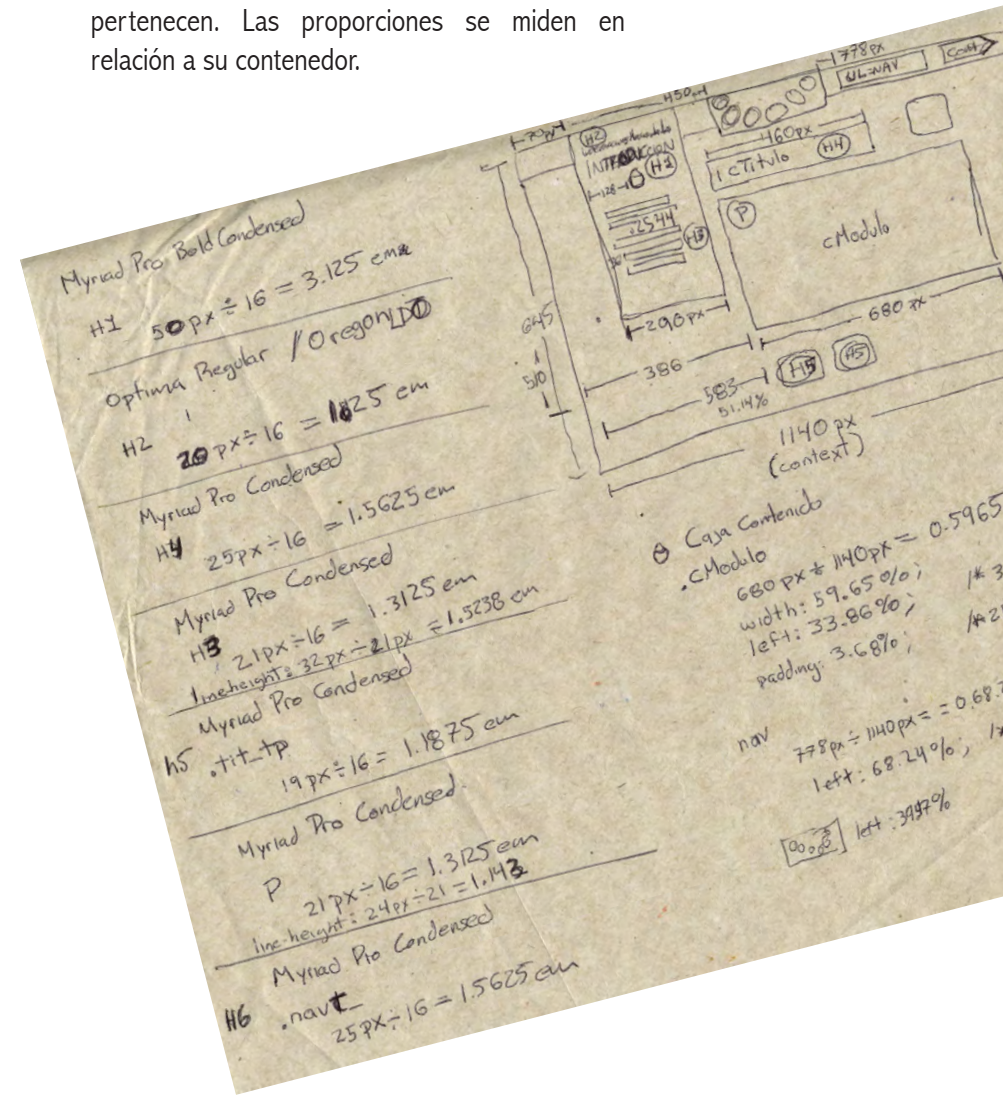 pertenecen. Las proporciones se miden en
relación a su contenedor.
Myriad Pro Bold Condensed
H1 50px ÷ 16 = 3.125 em
Optima Regular / Oregon LDO
H2 20px ÷ 16 = 1.25 em
Myriad Pro Condensed
H4 25px ÷ 16 = 1.5625 em
Myriad Pro Condensed
H3 21px ÷ 16 = 1.3125 em
lineheight: 32px ÷ 21px = 1.5238 em
Myriad Pro Condensed
h5 .tit_tp
19px ÷ 16 = 1.1875 em
Myriad Pro Condensed
P 21px ÷ 16 = 1.3125 em
line-height: 24px ÷ 21 = 1.143
Myriad Pro Condensed
H6 .nav
25px ÷ 16 = 1.5625 em
70px
450px
778px
UL=NAV
H2
INTRODUCCION
H1
128
.2544
H3
290px
460px
cTitulo H4
P
cModulo
680px
645
510
386
583
51.14%
H5 H5
1140px
(context)
Caja Contenido
.cModulo
680px ÷ 1140px = 0.5965
width: 59.65%;
left: 33.86%; /* 3
padding: 3.68%; /* 2
nav
778px ÷ 1140px = = 0.68
left: 68.24%; /*
left: